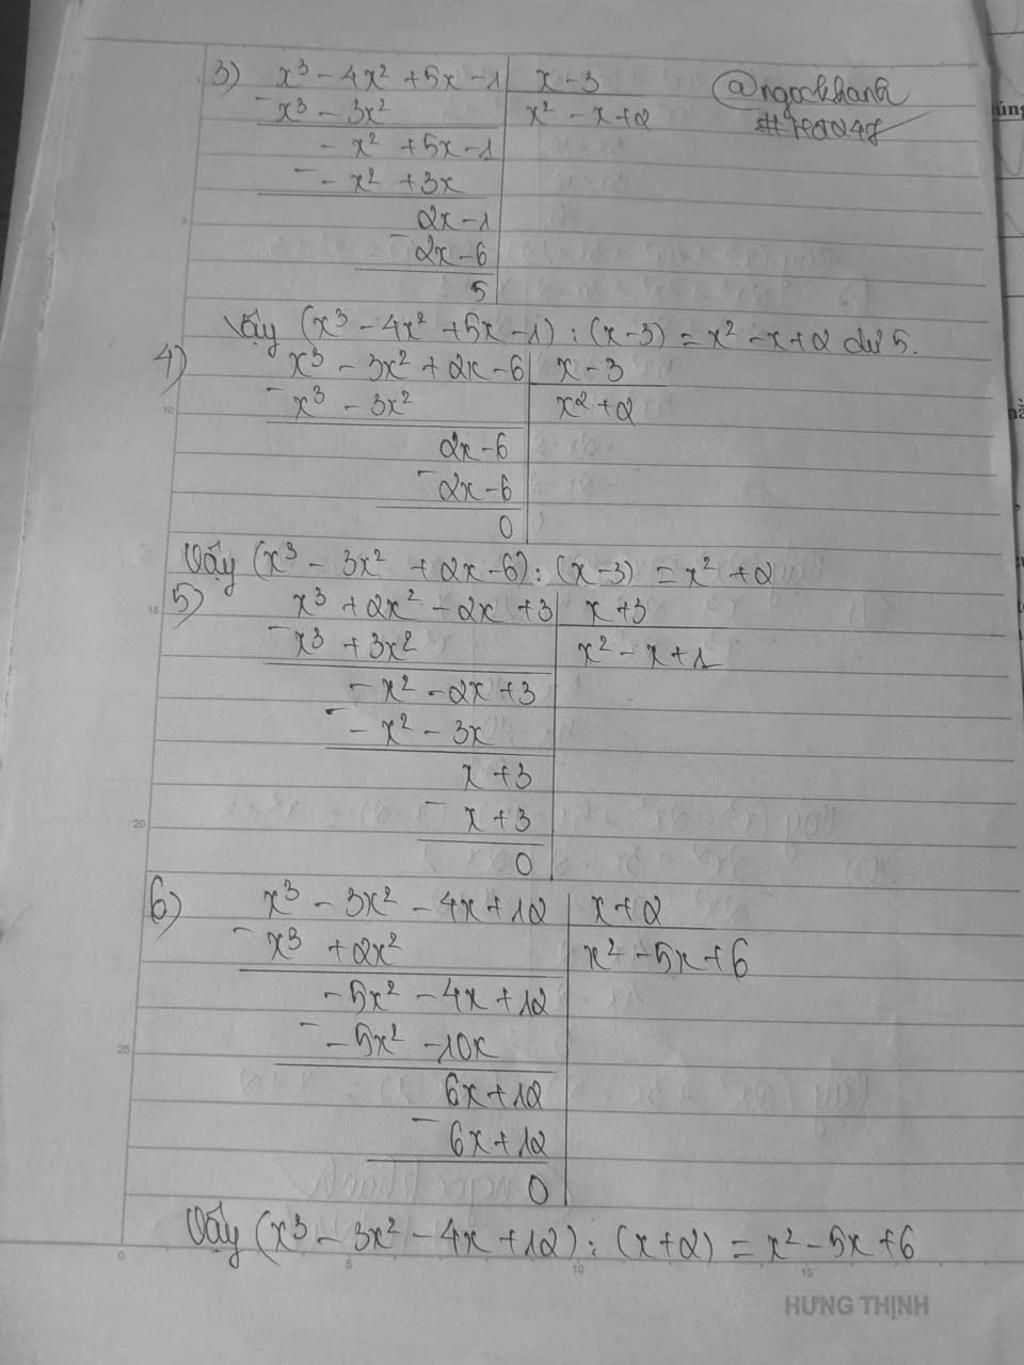 3) x³ - 4x² + 5x - 1 | x - 3 @ngockhanh
- x³ - 3x² | x² - x + 2
- x² + 5x - 1
- - x² + 3x
2x - 1
- 2x - 6
5
Vậy (x³ - 4x² + 5x - 1) : (x - 3) = x² - x + 2 dư 5.
4) x³ - 3x² + 2x - 6 | x - 3
- x³ - 3x² | x² + 2
2x - 6
- 2x - 6
0
Vậy (x³ - 3x² + 2x - 6) : (x - 3) = x² + 2
5) x³ + 2x² - 2x + 3 | x + 3
- x³ + 3x² | x² - x + 1
- x² - 2x + 3
- - x² - 3x
x + 3
- x + 3
0
6) x³ - 3x² - 4x + 12 | x + 2
- x³ + 2x² | x² - 5x + 6
- 5x² - 4x + 12
- - 5x² - 10x
6x + 12
- 6x + 12
0
Vậy (x³ - 3x² - 4x + 12) : (x + 2) = x² - 5x + 6
0 5 10 15
HƯNG THỊNH